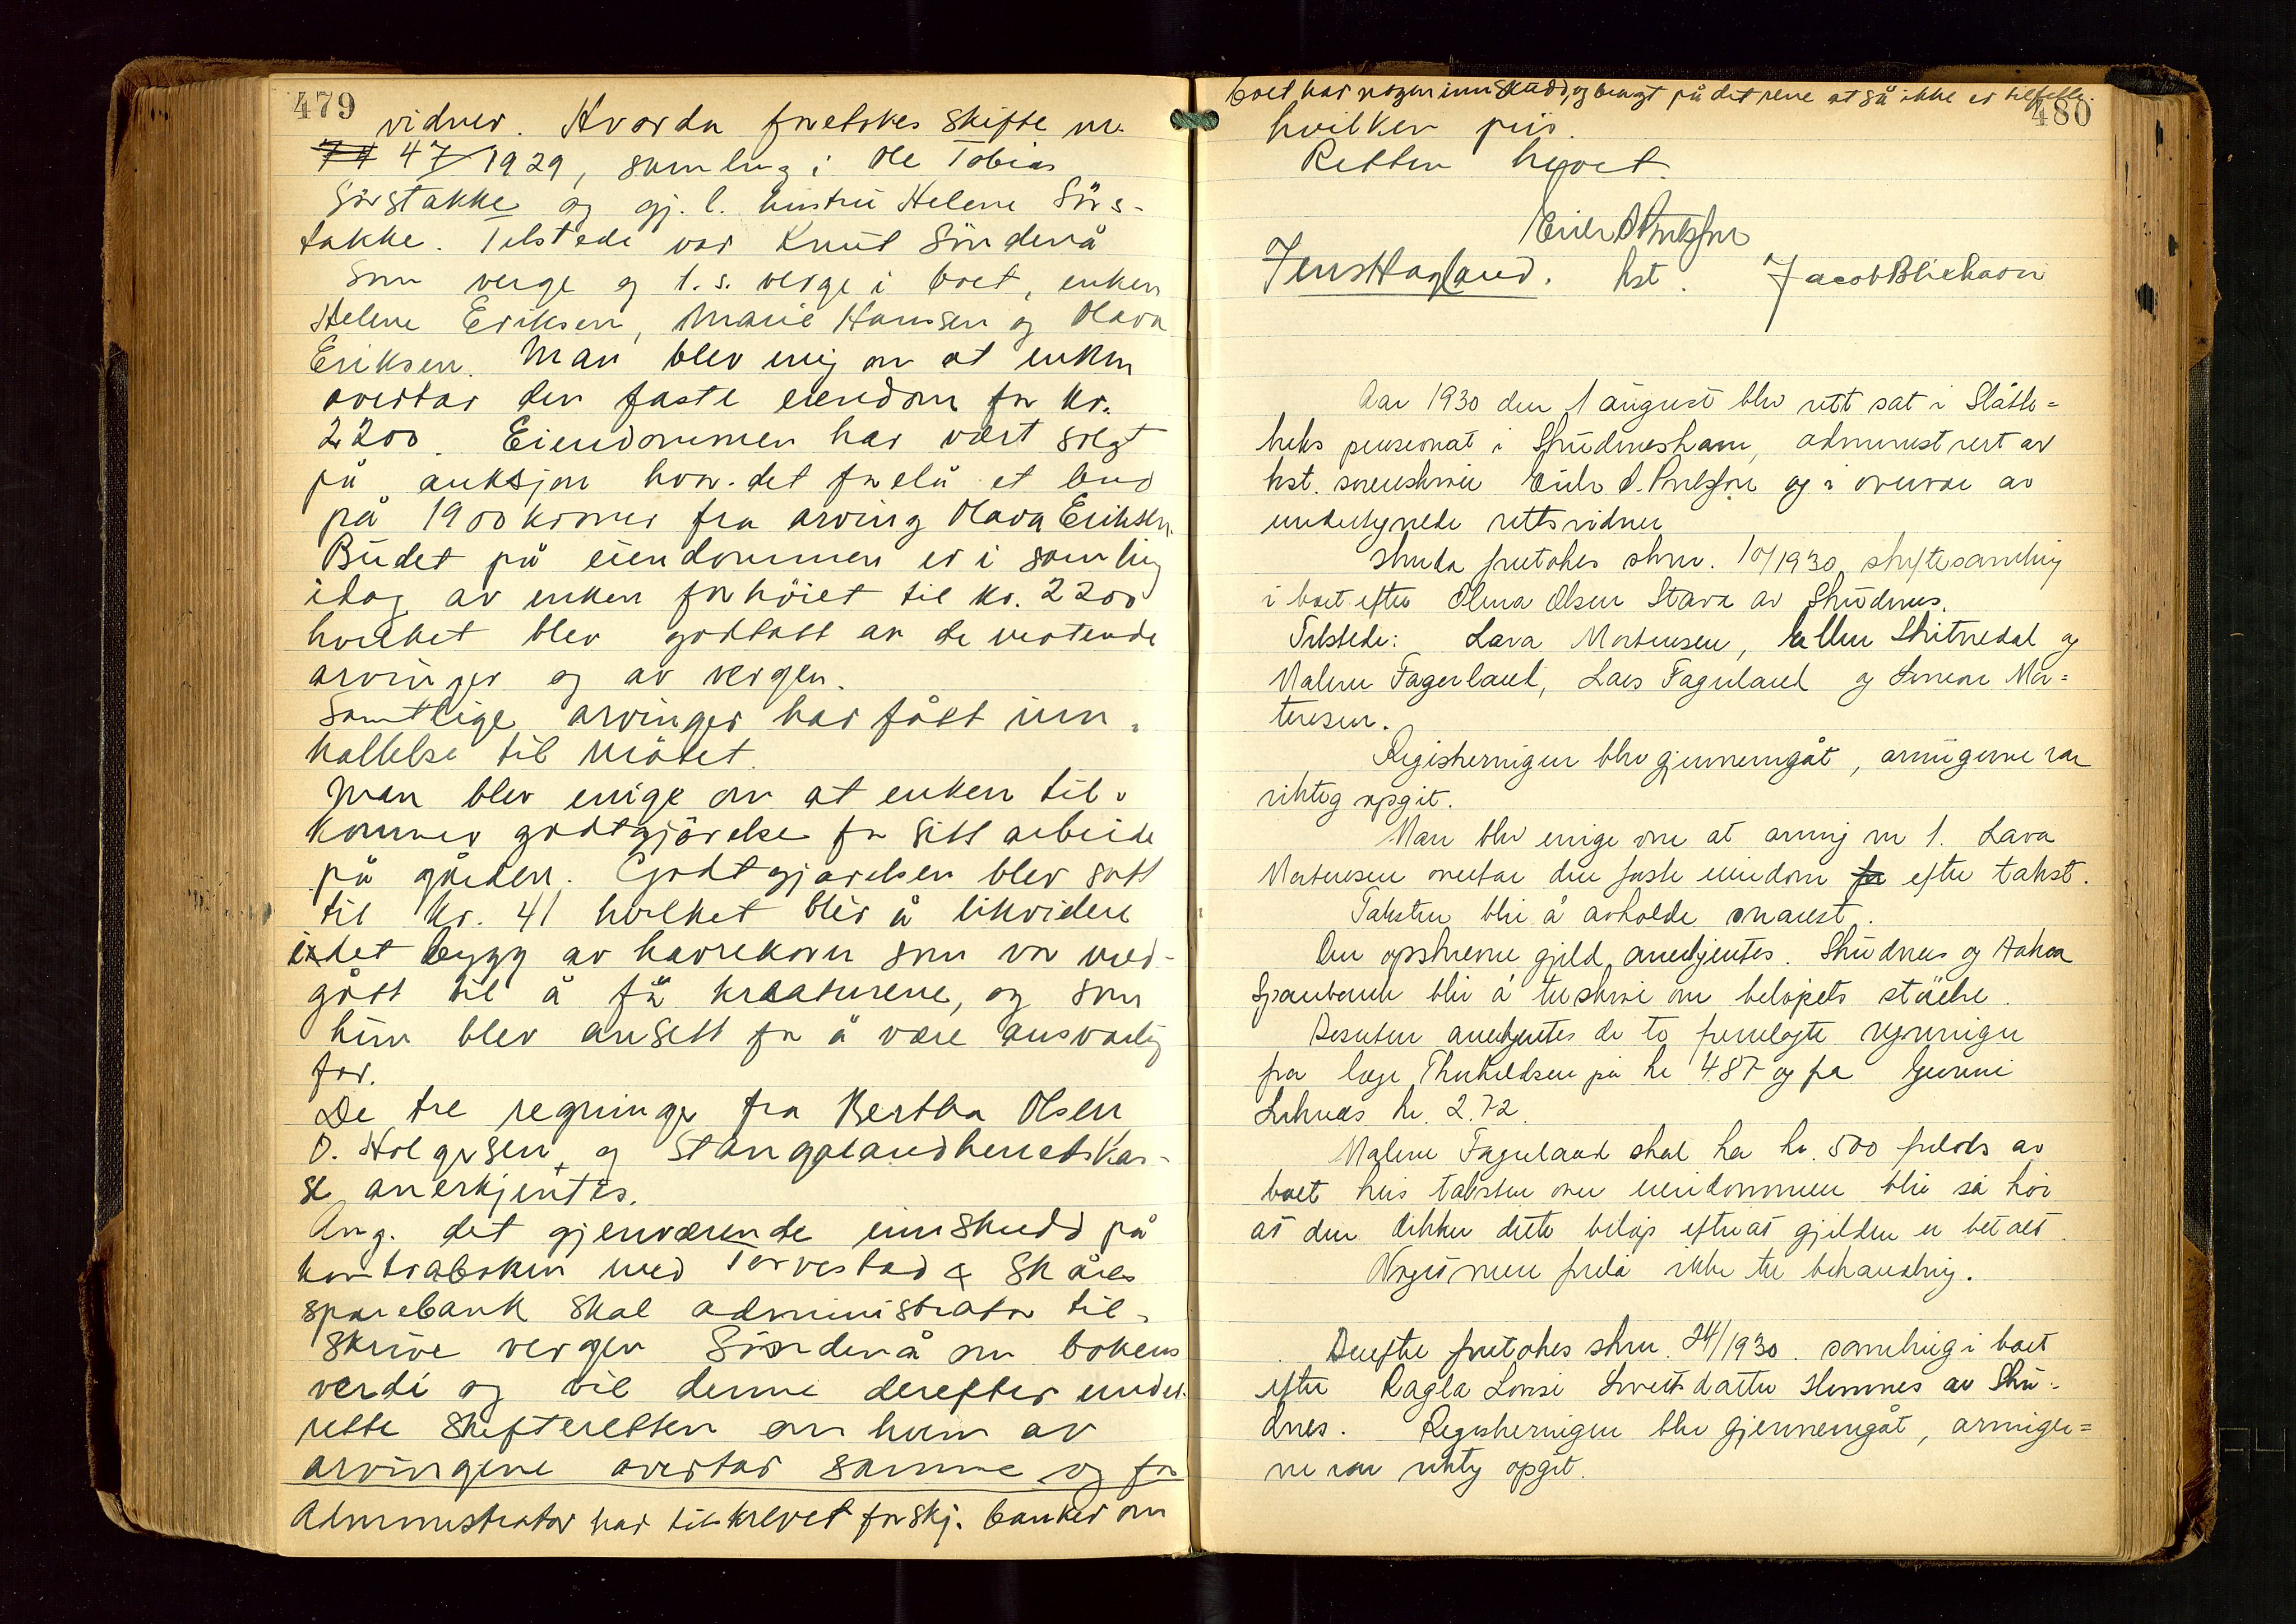 479
vidner. Hvorda foretokes skifte nr.
47/1929, samling i Ole Tobias
Sørstakke og gj. l. hustru Helene Sørs-
takke. Tilstede var Knut Søndenå
som verge og t. s. verge i boet, enken
Helene Eriksen, Marie Hansen og Olava
Eriksen. Man blev enig om at enken
overtar den faste eiendom for kr.
2200. Eiendommen har vært solgt
på auksjon hvor det forelå et bud
på 1900 kroner fra arving Olava Eriksen.
Budet på eiendommen er i samling
idag av enken forhøiet til kr. 2200
hvilket blev godtatt av de møtende
arvinger og av vergen.
Samtlige arvinger har fått inn-
kallelse til møtet.
Man blev enige om at enken til-
kommer godtgjørelse for sitt arbeide
på gården. Godtgjørelsen blev satt
til kr. 41 hvilket blir å likvidere
i det bygg av havrekorn som var med-
gått til å fø kreaturene, og som
hun blev ansett for å være ansvarlig
for.
De tre regninger fra Bertha Olsen,
O. Holgersen, og Stangalandherredskas-
se anerkjentes.
Ang. det gjenværende innskudd på
kontraboken med Torvestad & Skåre
sparebank skal administrator til-
skrive vergen Søndenå om bokens
verdi og vil denne derefter under-
rette skifteretten om hvem av
arvingene overtar samme og for
Administrator har tilskrevet forskj. banker om
boet har nogen innskudd, og bragt på det rene at så ikke er tilfelle.
480
hvilken pris.
Retten hevet.
Jens Hagland. kst. Jacob Blikhavn
Aar 1930 den 1 august blev rett sat i Slåtte-
beks pensionat i Skudneshavn, administrert av
kst. sorenskriver Erik og i overvær av
undertegnede rettsvidner
Skuda foretokes sknr. 10/1930, skiftesamling
i boet efter Olena Olsen Stava av Skudnes.
Tilstede: Lava Mortensen, Ellen Skitnedal og
Malene Fagerland, Lars Fagerland og Mor=
tensen.
Registreringen blev gjennemgåt, arvingerne var
riktig opgit.
Man blev enige om at arving nr 1. Lava
Mortensen overtar den faste eiendom for efter takst.
Taksten blir å avholde snarest.
Den opskrevne gjeld anerkjentes. Skudnes og Aakra
Sparebank blir å tilskrive om beløpets størrelse.
Desuten anerkjentes de to fremlagte regninger
fra læge Thorkildsen på kr 487 og fra Gunni
kr. 2.72.
Malene Fagerland skal ha kr. 500 forlods av
boet hvis taksten over eiendommen blir så høi
at den dekker dette beløp efterat gjelden er betalt.
Noget mere forelå ikke til behandling.
Derefter foretokes sknr. 24/1930. samling i boet
efter Ragla Lovise Hemnes av Sku-
dnes. Registreringen blev gjennemgåt, arvinger=
ne var riktig opgit.